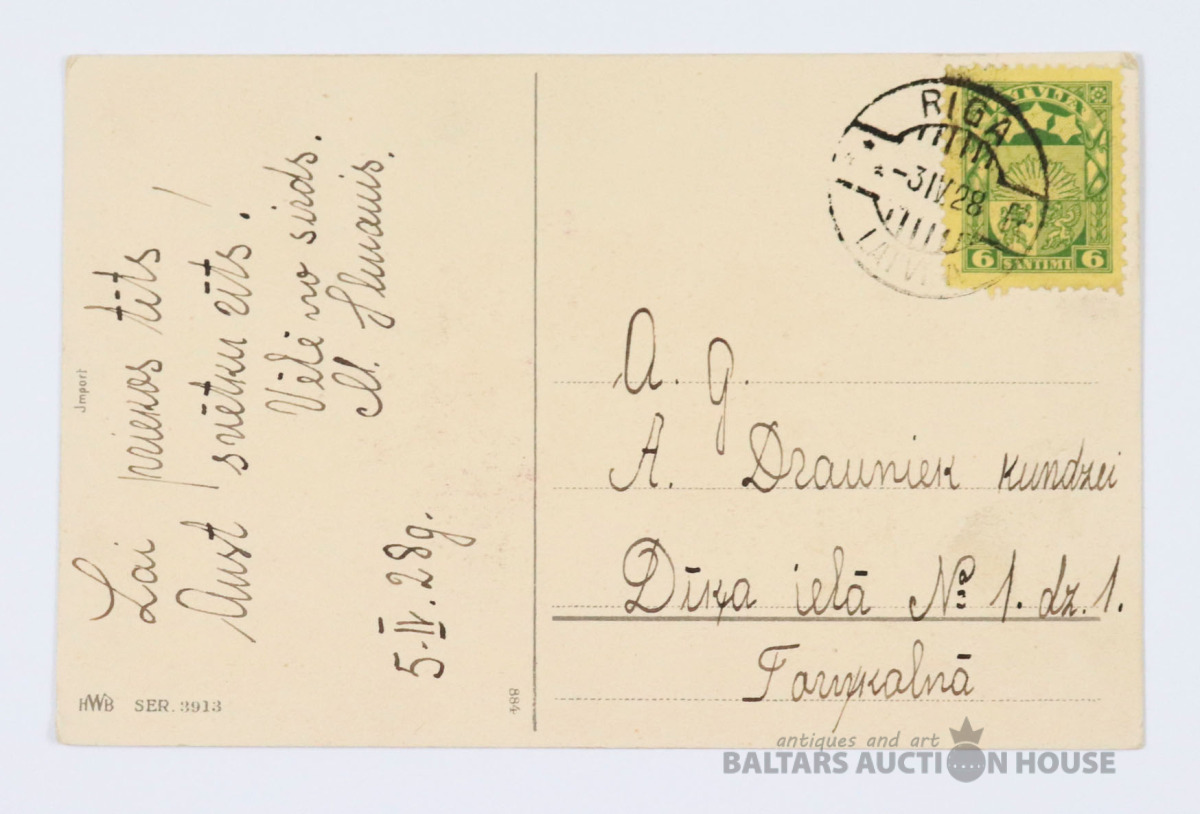 Lai priekos tīts
Aust svētku rīts!
Vēlē no sirds.
M.
5-IV. 28g.
Jmport
HWB SER. 3913
884
RIGA
-3 IV. 28
LATVIJA
LATVIJA
6 SANTIMI 6
A. g.
A. Drauniek kundzei
Dīķa ielā № 1. dz. 1.
Torņkalnā
antiques and art
BALTARS AUCTION HOUSE